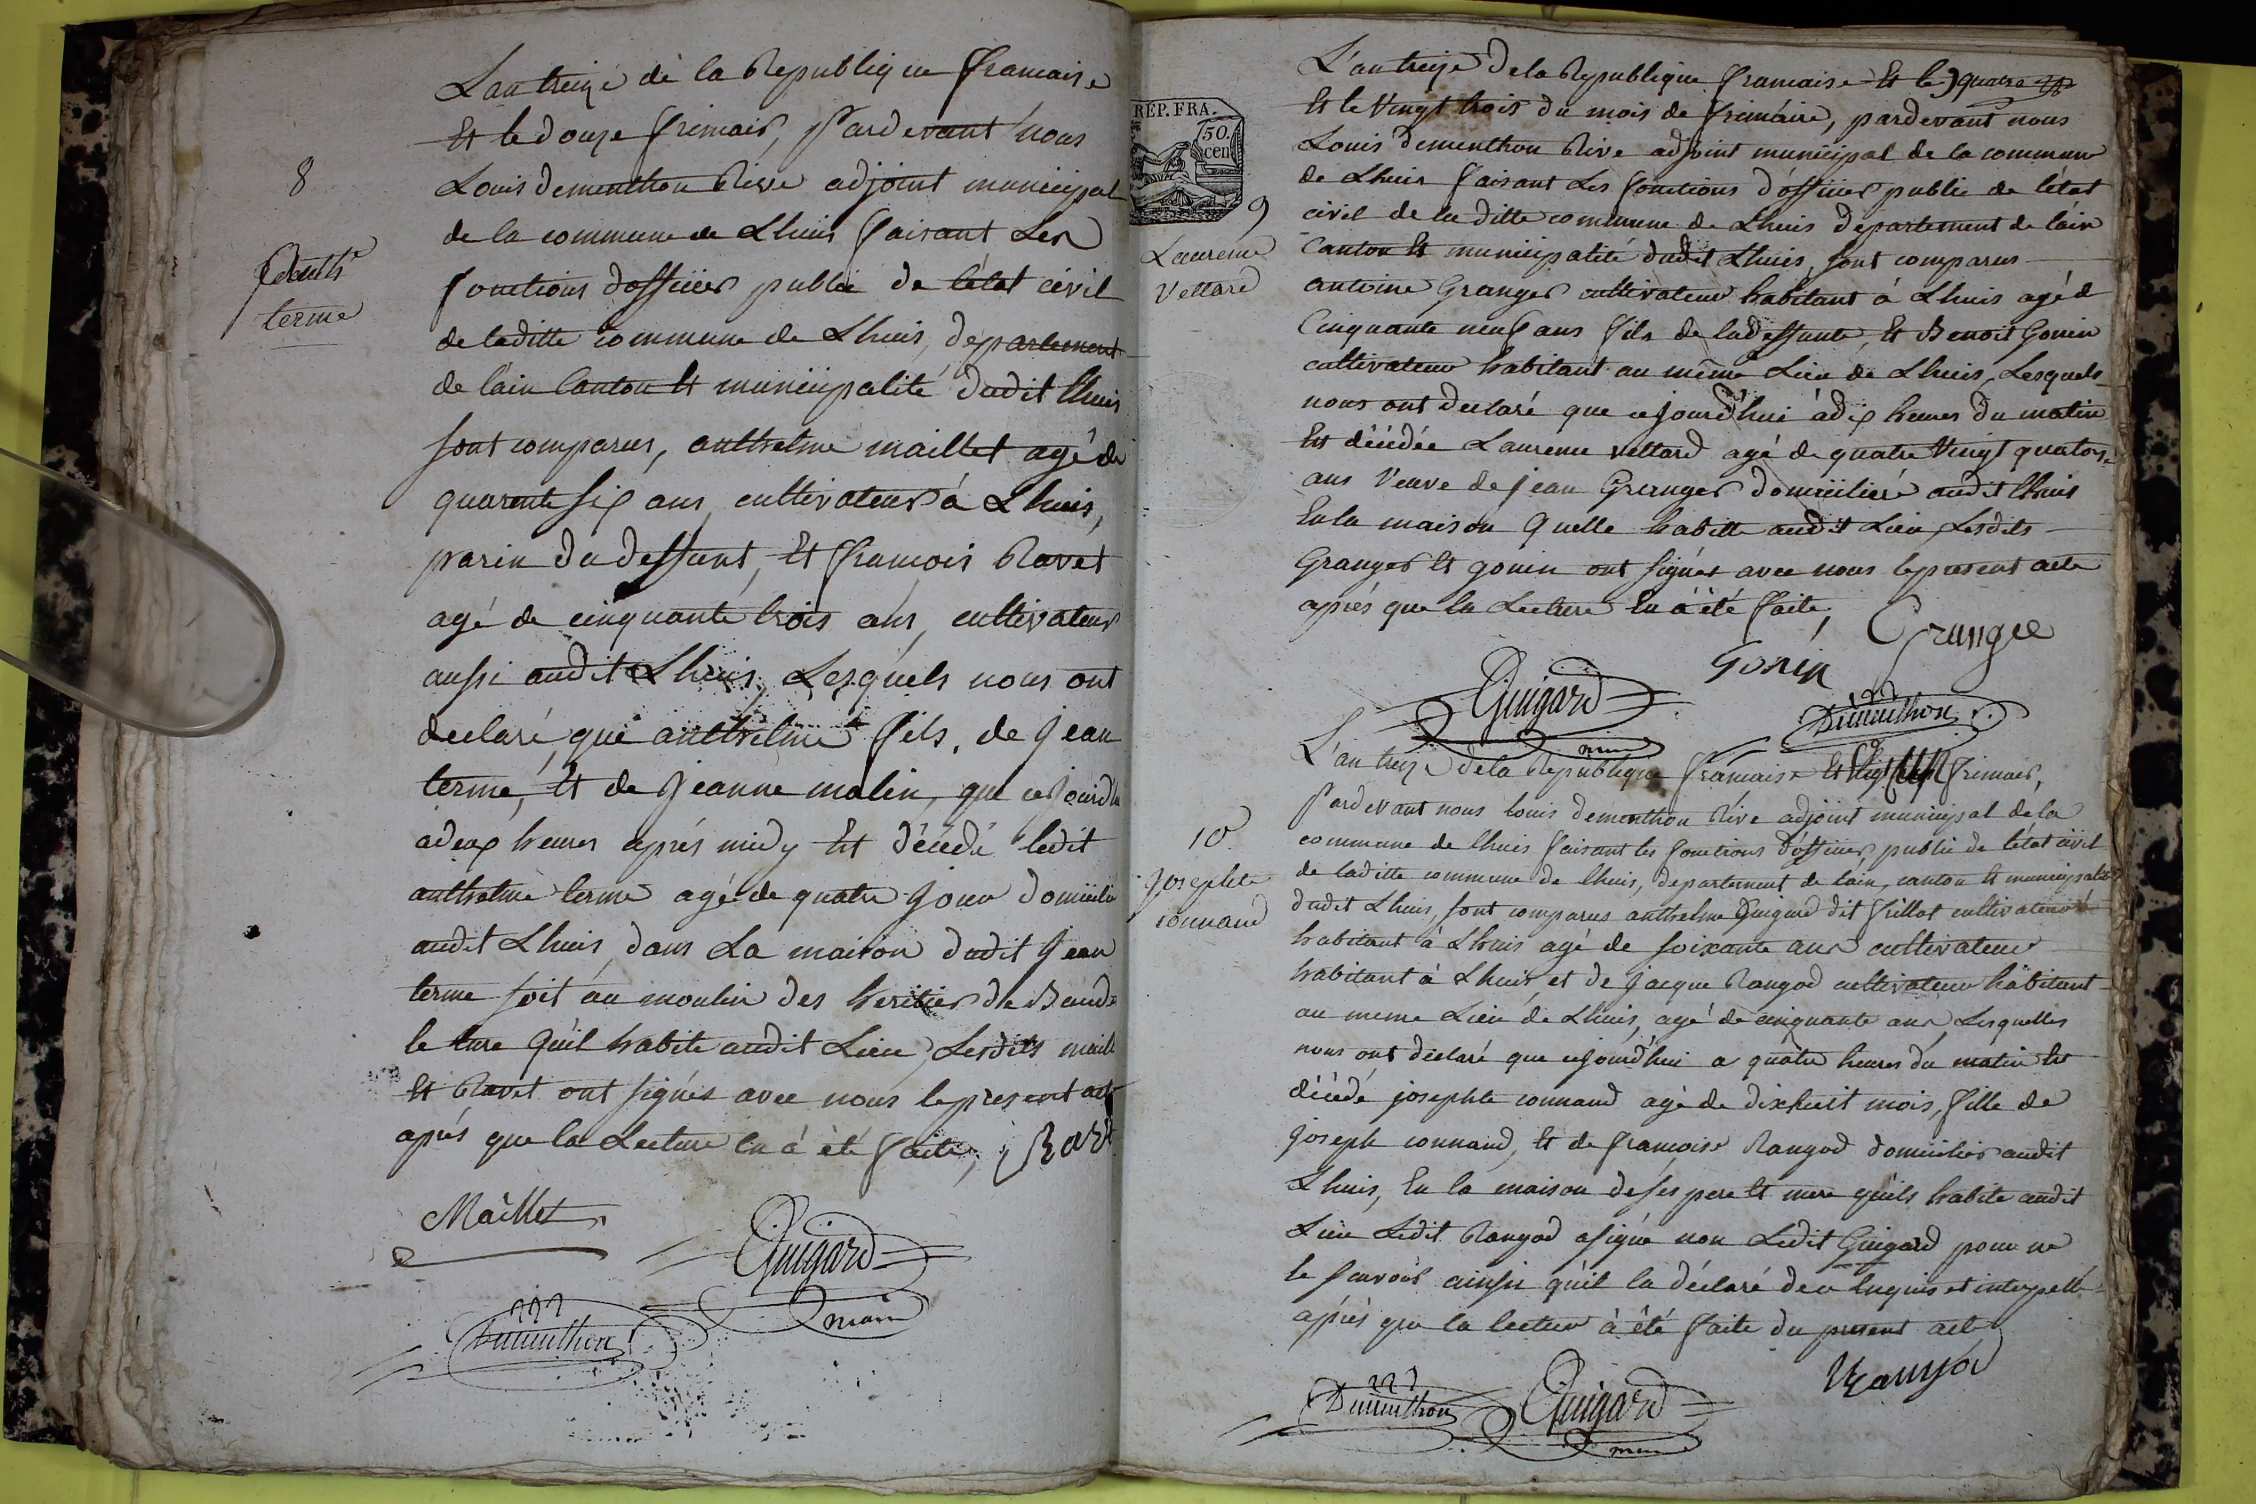 8
Anth.e
terme
L'an treize de la Republique francaise
Et le douze frimair, Pardevant nous
Louis Dementhon Rive adjoint municipal
de la commune de Lhuis faisant Les
fonctions dofficier public de l'état civil
de laditte commune de Lhuis, departement
de l'ain Canton Et municipalité dudit Lhuis
sont comparus, anthelme maillet agé de
quarente six ans, cultivateur à Lhuis,
parin du deffunt, Et francois Ravet
agé de cinquante trois ans, cultivateur
aussi audit Lhuis, Lesquels nous ont
declaré, que anthelme fils, de Jean
terme, Et de Jeanne malin, que cejourdh
adeux heures aprés midy Est décédé ledit
anthelme terme agé de quatre jour domicilié
audit Lhuis, dans La maison dudit Jean
terme soit au moulin des heritier de Baude
le ture qu'il habite audit Lieu, Lesdits maill
Et Ravet ont signés avec nous le present act
aprés que la Lecture en à été faite,
Maillet
Guigard
maire
Dementhon
REP. FRA.
50.
cen
9
Laurence
Vettard
L'an treize de la Republique francaise Et le quatre
Et le Vingt trois du mois de frimaire, pardevant nous
Louis Dementhon Rive adjoint municipal de la commune
de Lhuis faisant Les fonctions d'officier public de l'état
civil de la ditte commune de Lhuis departement de l'ain
Canton Et municipalité dudit Lhuis, sont comparus
antoine Granger cultivateur habitant à Lhuis agé d
Cinquante neuf ans fils de ladeffunte, Et Benoit Gonin
cultivateur habitant au même Lieu de Lhuis, Lesquels
nous ont declaré que cejourd'hui àdix heures du matin
Est décédée Laurence Vettard agé de quatre Vingt quatorze
ans Veuve de jean Granger domicilieé audit Lhuis
En la maison quelle habitte audit Lieu, Lesdits
Granger Et gonin ont signés avec nous le present acte
aprés que la Lecture En à été faite,
Grangee
Gonin
Guigard
maire
Dementhon
10
Josephte
connand
L'an treize de la Republique francaise Et frimair,
Pardevant nous Louis dementhon Rive adjoint municipal de la
commune de lhuis faisant les fonctions d'officier, public de l'état civil
de laditte commune de lhuis, departement de lain, canton Et municipalité
dudit Lhuis, sont comparus anthelme Guigard dit frillot cultivateur
habitant à Lhuis agé de soixante ans cultivateur
habitant à Lhuis et de jacque Rangod cultivateur habitant
au meme Lieu de Lhuis, agé de cinquante ans, Lesquelles
nous ont déclaré que cejourd'hui a quatre heures du matin Est
décédé, josephte connand agé de dixhuit mois, fille de
joseph connand, Et de francoise Rangod domiciliés audit
Lhuis, En la maison de ses pere Et mere qu'ils habite audit
Lieu Ledit Rangod asigné non Ledit Guigard pour ne
le scavoir ainsi qu'il la déclaré de ce Enquis et interpellé
aprés que la lecteur à été faite du present act
Rangod
Dementhon
Guigard
maire